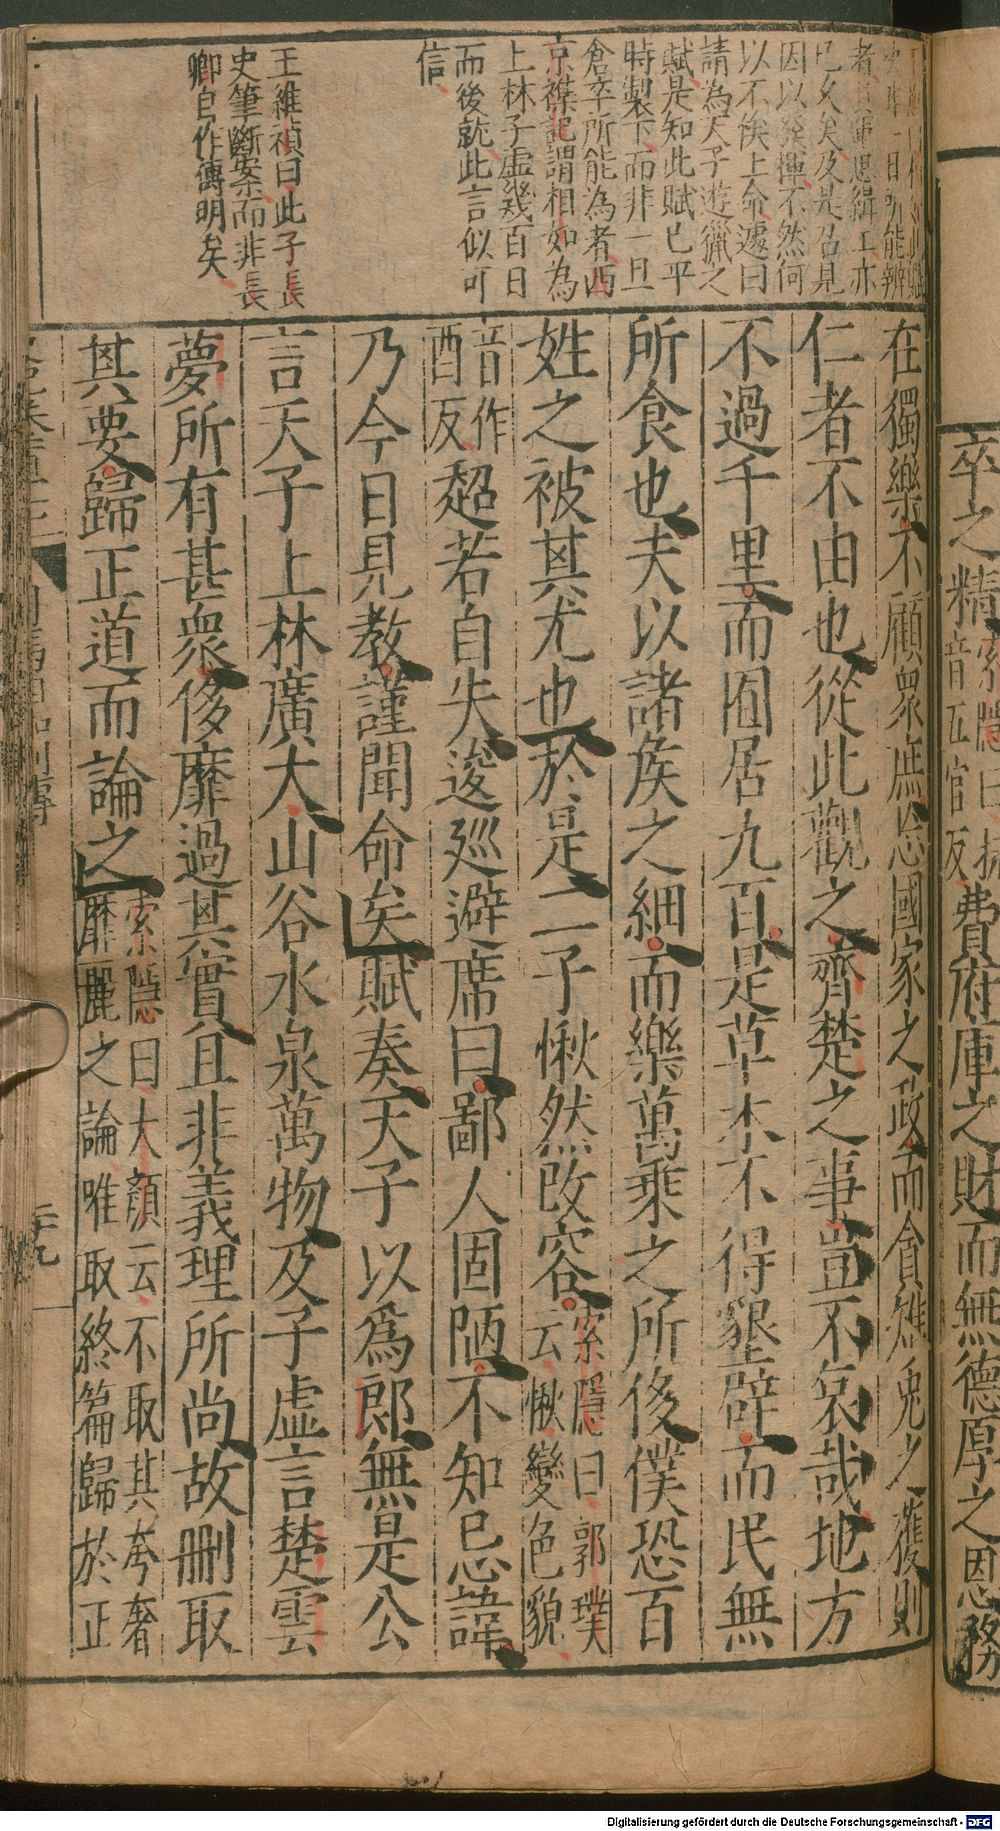 卒之精索隱曰抏音五官反費府庫之財而無德厚之恩務
在獨樂不顧衆庶忘國家之政而貪雉兎之獲則
仁者不由也從此觀之齊楚之事豈不哀哉地方
不過千里而囿居九百是草木不得墾辟而民無
所食也夫以諸侯之細而樂萬乗之所侈僕恐百
姓之被其尤也於是二子愀然改容索隱曰郭璞云愀變色貌
音作酉反超若自失逡廵避席曰鄙人固陋不知忌諱
乃今日見教謹聞命矣賦奏天子以爲郎無是公
言天子上林廣大山谷水泉萬物及子虛言楚雲
夢所有甚衆侈靡過其實且非義理所尚故刪取
其要歸正道而論之索隱曰大顏云不取其夸奢靡麗之論唯取終篇歸於正
已久矣及是召見
因以發揮不然何
以不俟上命遽曰
請為天子遊獵之
賦是知此賦已平
時製下而非一旦
倉卒所能為者西
京襍記謂相如為
上林子虛幾百日
而後就此言似可
信
王維禎曰此子長
史筆斷案而非長
卿自作傳明矣
二十九
Digitalisierung gefördert durch die Deutsche Forschungsgemeinschaft - DFG